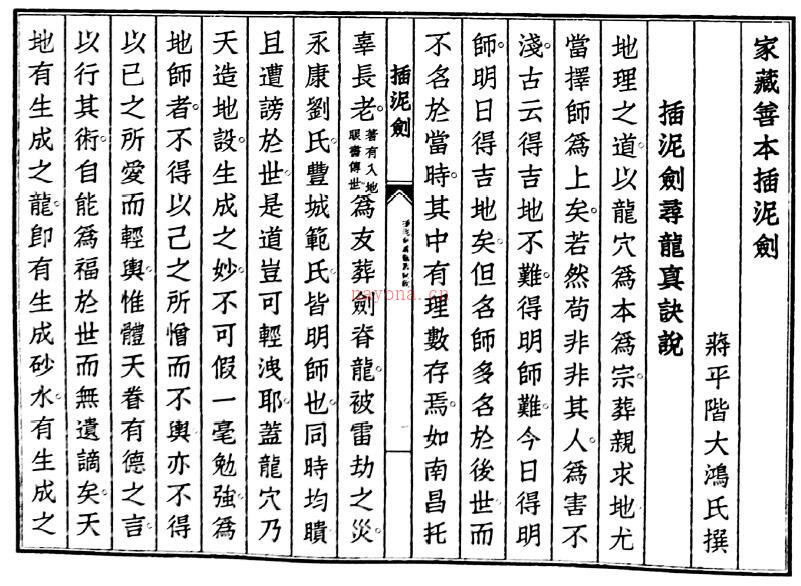 家藏善本插泥劍
蔣平階大鴻氏撰
插泥劍尋龍真訣說
地理之道以龍穴為本為宗葬親求地尤
當擇師為上矣若然苟非非其人為害不
淺古云得吉地不難得明師難今日得明
師明日得吉地矣但名師多名於後世而
不名於當時其中有理數存焉如南昌托
插泥劍
辜長老著有入地眼書傳世為友葬劍脊龍被雷劫之災
永康劉氏豐城範氏皆明師也同時均瞶
且遭謗於世是道豈可輕洩耶蓋龍穴乃
天造地設生成之妙不可假一毫勉強為
地師者不得以己之所憎而不輿亦不得
以己之所愛而輕輿惟體天眷有德之言
以行其術自能為福於世而無遺謫矣天
地有生成之龍即有生成砂水有生成之
nayona.cn